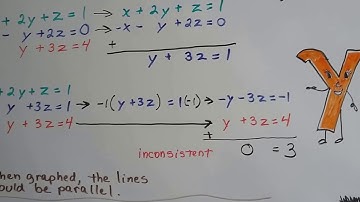 + 2y + z = 1 → x + 2y + z = 1
- y + 2z = 0 → -x - y + 2z = 0
y + 3z = 4 +
y + 3z = 1
+ 2y + z = 1
y + 3z = 1 → -1(y + 3z) = 1(-1) → -y - 3z = -1
y + 3z = 4 → y + 3z = 4
+
inconsistent 0 = 3
hen graphed, the lines
ould be parallel.
Y